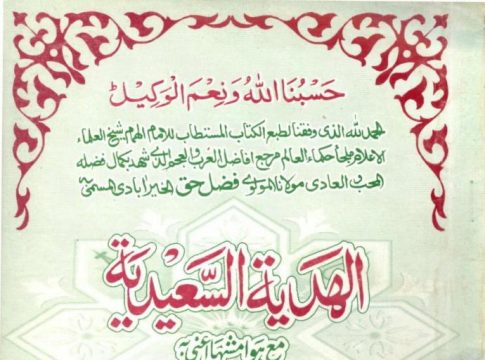 حَسْبُنَا اللهُ وَنِعْمَ الْوَكِيْل
الحمد لله الذی وفقنا لطبع الكتاب المستطاب للامام الهمام شيخ العلماء
الاعلام ملجأ حكماء العالم مرجع افاضل العرب والعجم الذی شهد بكمال فضله
المحب والعادی مولانا المولوی فضل حق الخیرابادی المسمیٰ بہ
الهدية السَّعيدية
مع هوامشها اعنی بہ